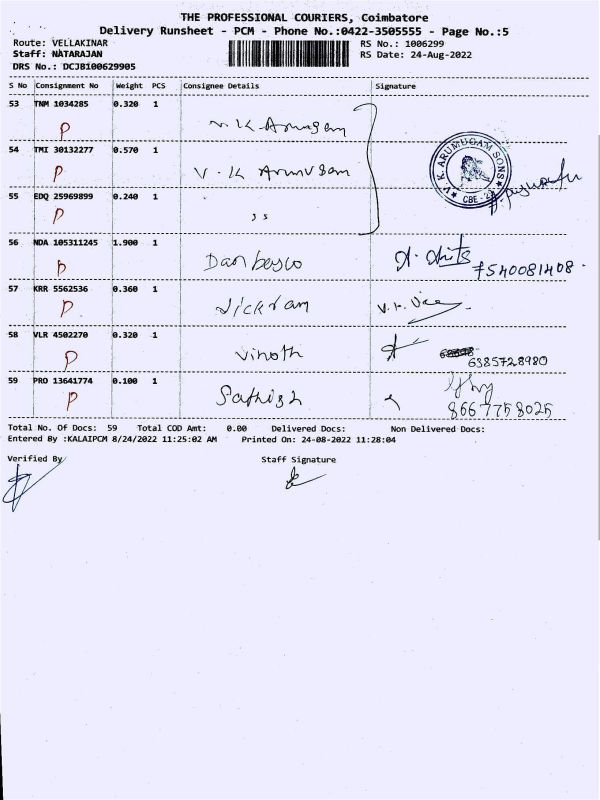 THE PROFESSIONAL COURIERS, Coimbatore
Delivery Runsheet - PCM - Phone No.:0422-3505555 - Page No.:5
Route: VELLAKINAR
RS No.: 1006299
Staff: NATARAJAN
RS Date: 24-Aug-2022
DRS No.: DCJB100629905
S No Consignment No Weight PCS Consignee Details Signature
53 TNM 1034285 0.320 1
P V. K Arumugam
54 TMI 30132277 0.570 1
P V. K Arumugam
V.K. ARUMUGAM SONS
CBE - 2
55 EDQ 25969899 0.240 1
P ,,
56 NDA 105311245 1.900 1
P Dan bosco 7540081408.
57 KRR 5562536 0.360 1
P. Vickram
58 VLR 4502270 0.320 1
P Vinoth 6385728980
59 PRO 13641774 0.100 1
P Sathish 8667758025
Total No. Of Docs: 59 Total COD Amt: 0.00 Delivered Docs: Non Delivered Docs:
Entered By :KALAIPCM 8/24/2022 11:25:02 AM Printed On: 24-08-2022 11:28:04
Verified By Staff Signature